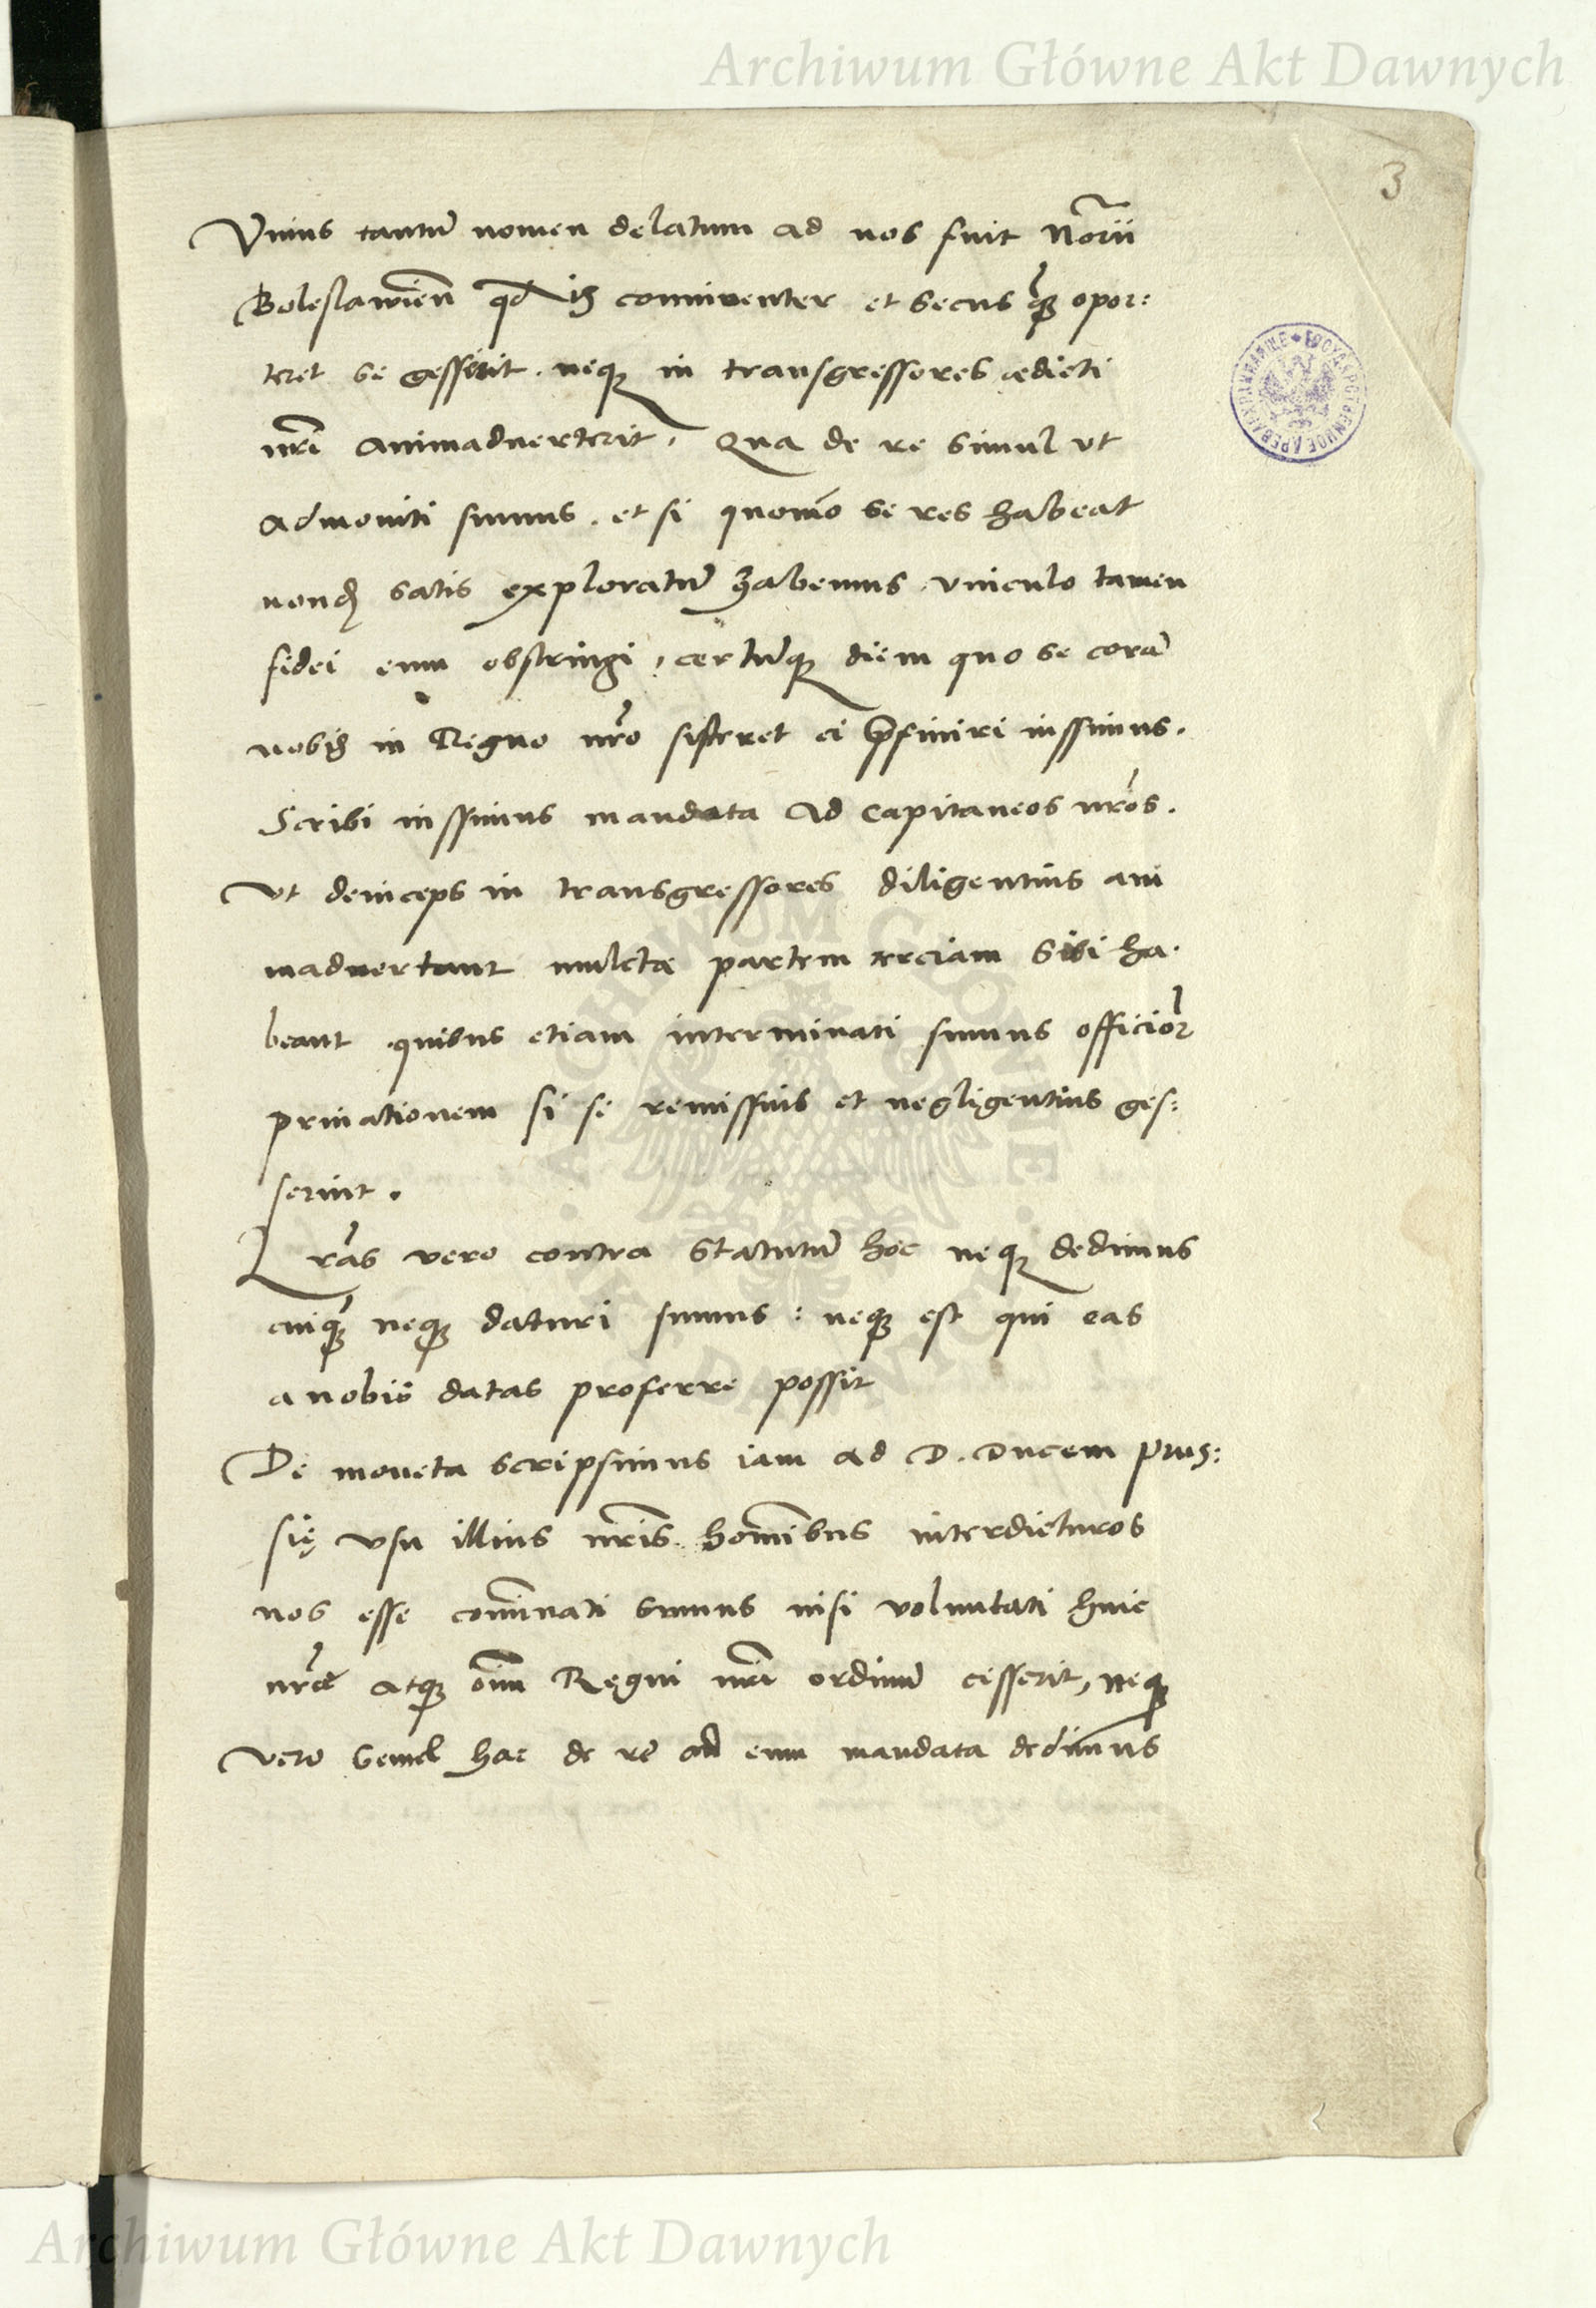 Archiwum Główne Akt Dawnych
3
Vnius tantū nomen delatum ad nos fuit Notarii
Boleslawień qd is conniventer et secus q̃ opor:
teret se gesserit. neq; in transgressores ædicti
nr̃i animadverterit, Qua de re simul vt
admoniti sumus. et si quomō se res habeat
nond satis exploratū habemus. vinculo tamen
fidei eum obstringi, certūq; diem quo se corā
nobis in Regno nr̃o sisteret ei p̃finiri iussimus.
Scribi iussimus mandata ad Capitaneos nr̃os.
Vt deinceps in transgressores diligentius ani
madvertant mulctæ partem terciam sibi ha.
beant quibus etiam interminati sumus officior
privationem si se remissius et negligentius ges:
serint.
Lr̃as vero contra statutū hoc neq; dedimus
cuiq̃ neq; daturi sumus: neq; est qui eas
a nobis datas proferre possit
De moneta scripsimus iam ad D. Ducem prus:
się vsu illius nr̃is hoĩbus interdicturos
nos esse com̃inati sumus nisi voluntati huic
nr̃æ atq; oĩm Regni nr̃i ordinū cesserit, neq;
vero semel hac de re ad eum mandata dedimus
ARCHIWUM GŁÓWNE
AKT DAWNYCH
Archiwum Główne Akt Dawnych